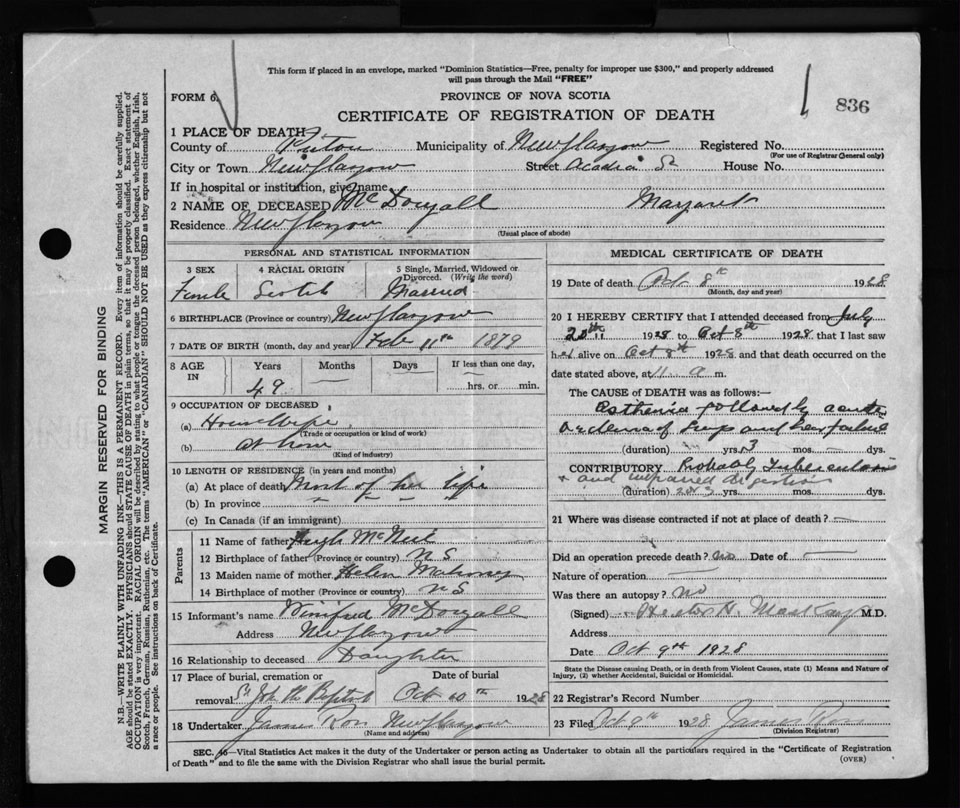 This form if placed in an envelope, marked "Dominion Statistics—Free, penalty for improper use $300," and properly addressed
will pass through the Mail "FREE"
FORM 6.
PROVINCE OF NOVA SCOTIA
836
CERTIFICATE OF REGISTRATION OF DEATH
1 PLACE OF DEATH
County of Pictou Municipality of New Glasgow Registered No.
(For use of Registrar General only)
City or Town New Glasgow Street Acadia St House No.
If in hospital or institution, give name
2 NAME OF DECEASED McDougall Margaret
Residence New Glasgow
(Usual place of abode)
PERSONAL AND STATISTICAL INFORMATION
3 SEX 4 RACIAL ORIGIN 5 Single, Married, Widowed or
Divorced. (Write the word)
Female Scotch Married
6 BIRTHPLACE (Province or country) New Glasgow
7 DATE OF BIRTH (month, day and year) Feb 11th 1879
8 AGE IN Years Months Days If less than one day,
49 hrs. or min.
9 OCCUPATION OF DECEASED
(a) Housewife
(Trade or occupation or kind of work)
(b) at home
(Kind of industry)
10 LENGTH OF RESIDENCE (in years and months)
(a) At place of death Most of her life
(b) In province
(c) In Canada (if an immigrant)
Parents
11 Name of father Hugh McNeil
12 Birthplace of father (Province or country) N S
13 Maiden name of mother Helen Mahoney
14 Birthplace of mother (Province or country) N S
15 Informant's name Winifred McDougall
Address New Glasgow
16 Relationship to deceased Daughter
17 Place of burial, cremation or Date of burial
removal St John the Baptist Oct 10th 1928
18 Undertaker James Ross New Glasgow
(Name and address)
MEDICAL CERTIFICATE OF DEATH
19 Date of death Oct 8th 1928
(Month, day and year)
20 I HEREBY CERTIFY that I attended deceased from July
20th 1928 to Oct 8th 1928 that I last saw
her alive on Oct 8th 1928 and that death occurred on the
date stated above, at 11 a m.
The CAUSE OF DEATH was as follows:—
Asthenia followed by acute
oedema of lungs and heart failure
(duration) yrs. 3 mos. dys.
CONTRIBUTORY Probably Tuberculosis
and impaired digestion
(duration) 2 or 3 yrs. mos. dys.
21 Where was disease contracted if not at place of death? —
Did an operation precede death? no Date of —
Nature of operation —
Was there an autopsy? no
(Signed) Hector H. MacKay M.D.
Address
Date Oct 9th 1928
State the Disease causing Death, or in death from Violent Causes, state (1) Means and Nature of
Injury, (2) whether Accidental, Suicidal or Homicidal.
22 Registrar's Record Number
23 Filed Oct 9th 1928 James Ross
(Division Registrar)
SEC. 46—Vital Statistics Act makes it the duty of the Undertaker or person acting as Undertaker to obtain all the particulars required in the "Certificate of Registration
of Death" and to file the same with the Division Registrar who shall issue the burial permit.
(OVER)
MARGIN RESERVED FOR BINDING
N.B.—WRITE PLAINLY WITH UNFADING INK—THIS IS A PERMANENT RECORD. Every item of information should be carefully supplied.
AGE should be stated EXACTLY. PHYSICIANS should STATE CAUSE OF DEATH in plain terms, so that it may be properly classified. Exact statement of
OCCUPATION is very important. RACIAL ORIGIN will be described by stating to what people or tongue the deceased person belonged, whether English, Irish,
Scotch, French, German, Russian, Ruthenian, etc. The terms "AMERICAN" or "CANADIAN" SHOULD NOT BE USED as they express citizenship but not
a race or people. See instructions on back of Certificate.